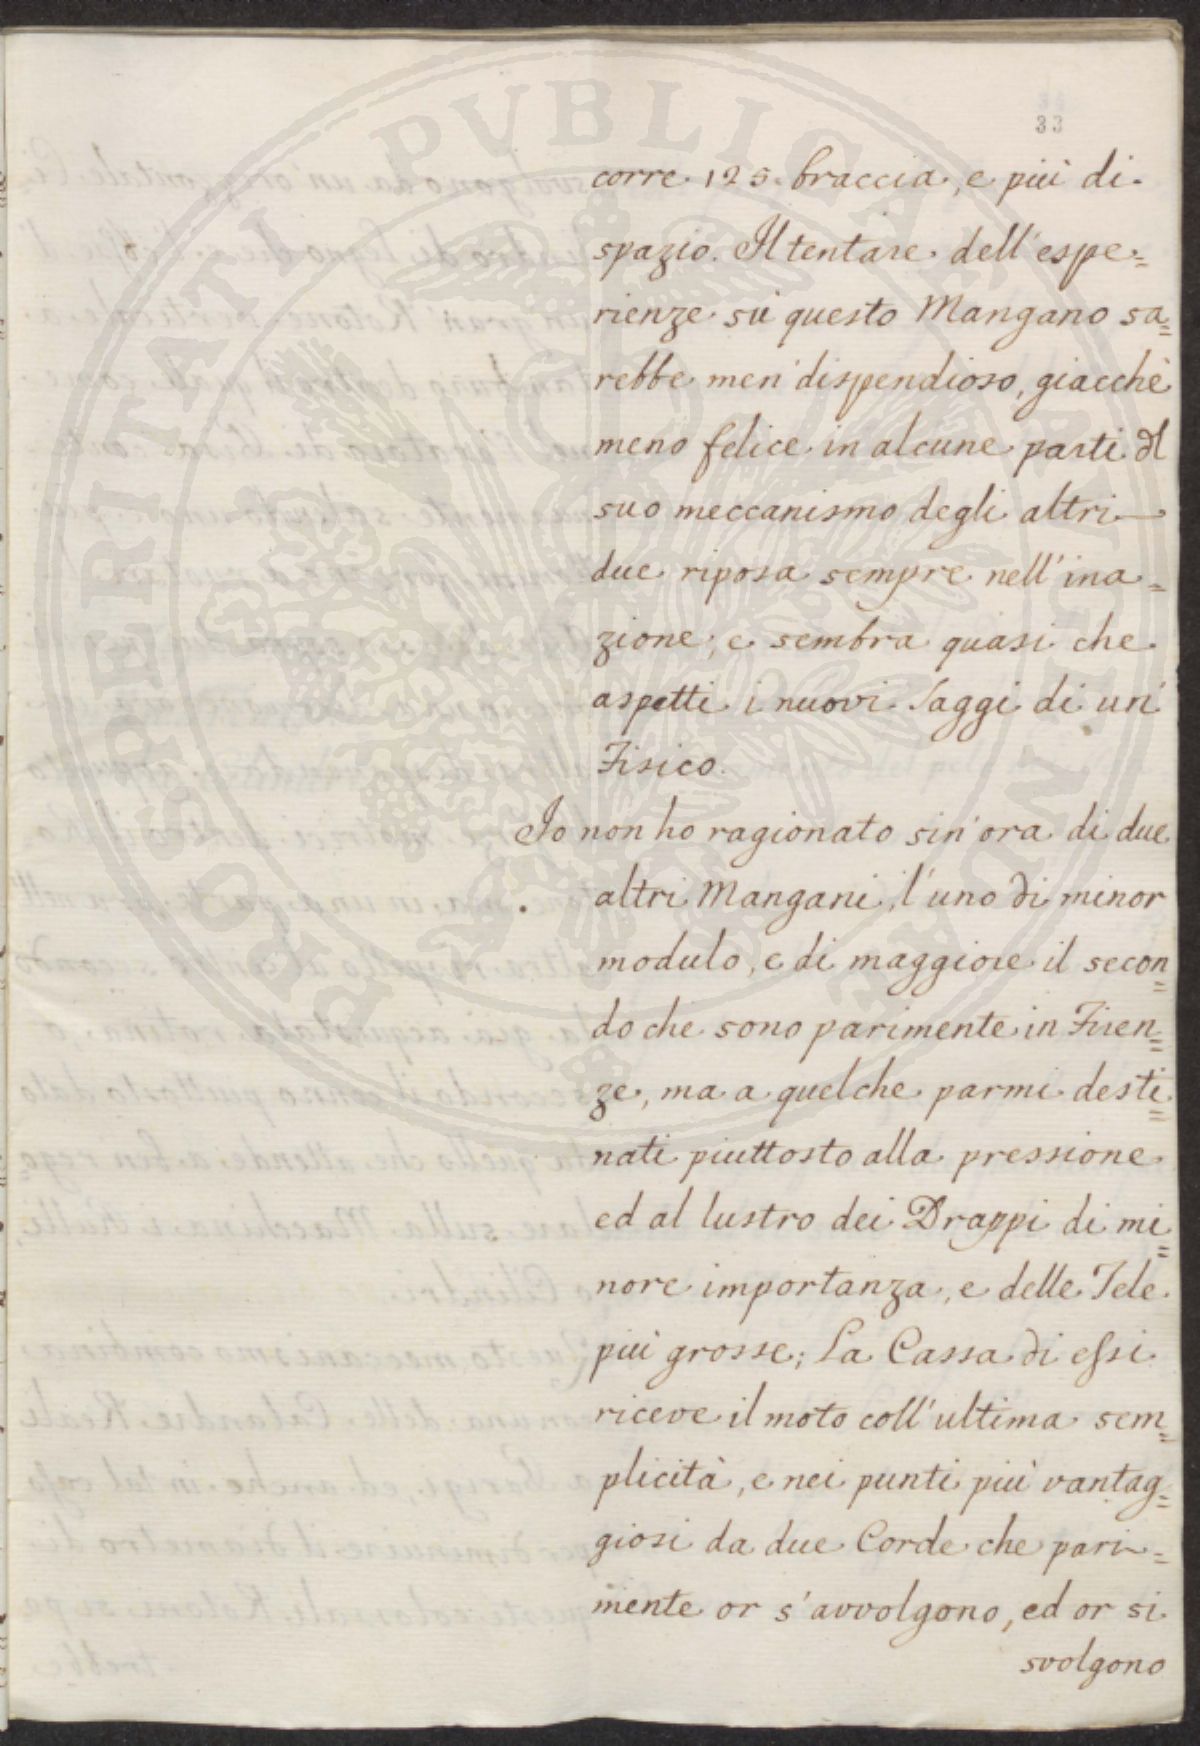 PROSPERITATI PUBLICAE AUGENDAE
33
corre 125. braccia, e più di
spazio. Il tentare dell'espe=
rienze sù questo Mangano sa=
rebbe men dispendioso, giacchè
meno felice in alcune parti dl
suo meccanismo degli altri
due riposa sempre nell'ina=
zione; e sembra quasi che
aspetti i nuovi Saggi di un'
Fisico.
Io non ho ragionato sin'ora di due
altri Mangani, l'uno di minor
modulo, e di maggiore il secon=
do che sono parimente in Firen=
ze, ma a quelche parmi desti=
nati piuttosto alla pressione
ed al lustro dei Drappi di mi=
nore importanza, e delle Tele
più grosse; La Cassa di essi
riceve il moto coll'ultima sem=
plicità, e nei punti più vantag=
giosi da due Corde che pari=
mente or s'avvolgono, ed or si
svolgono